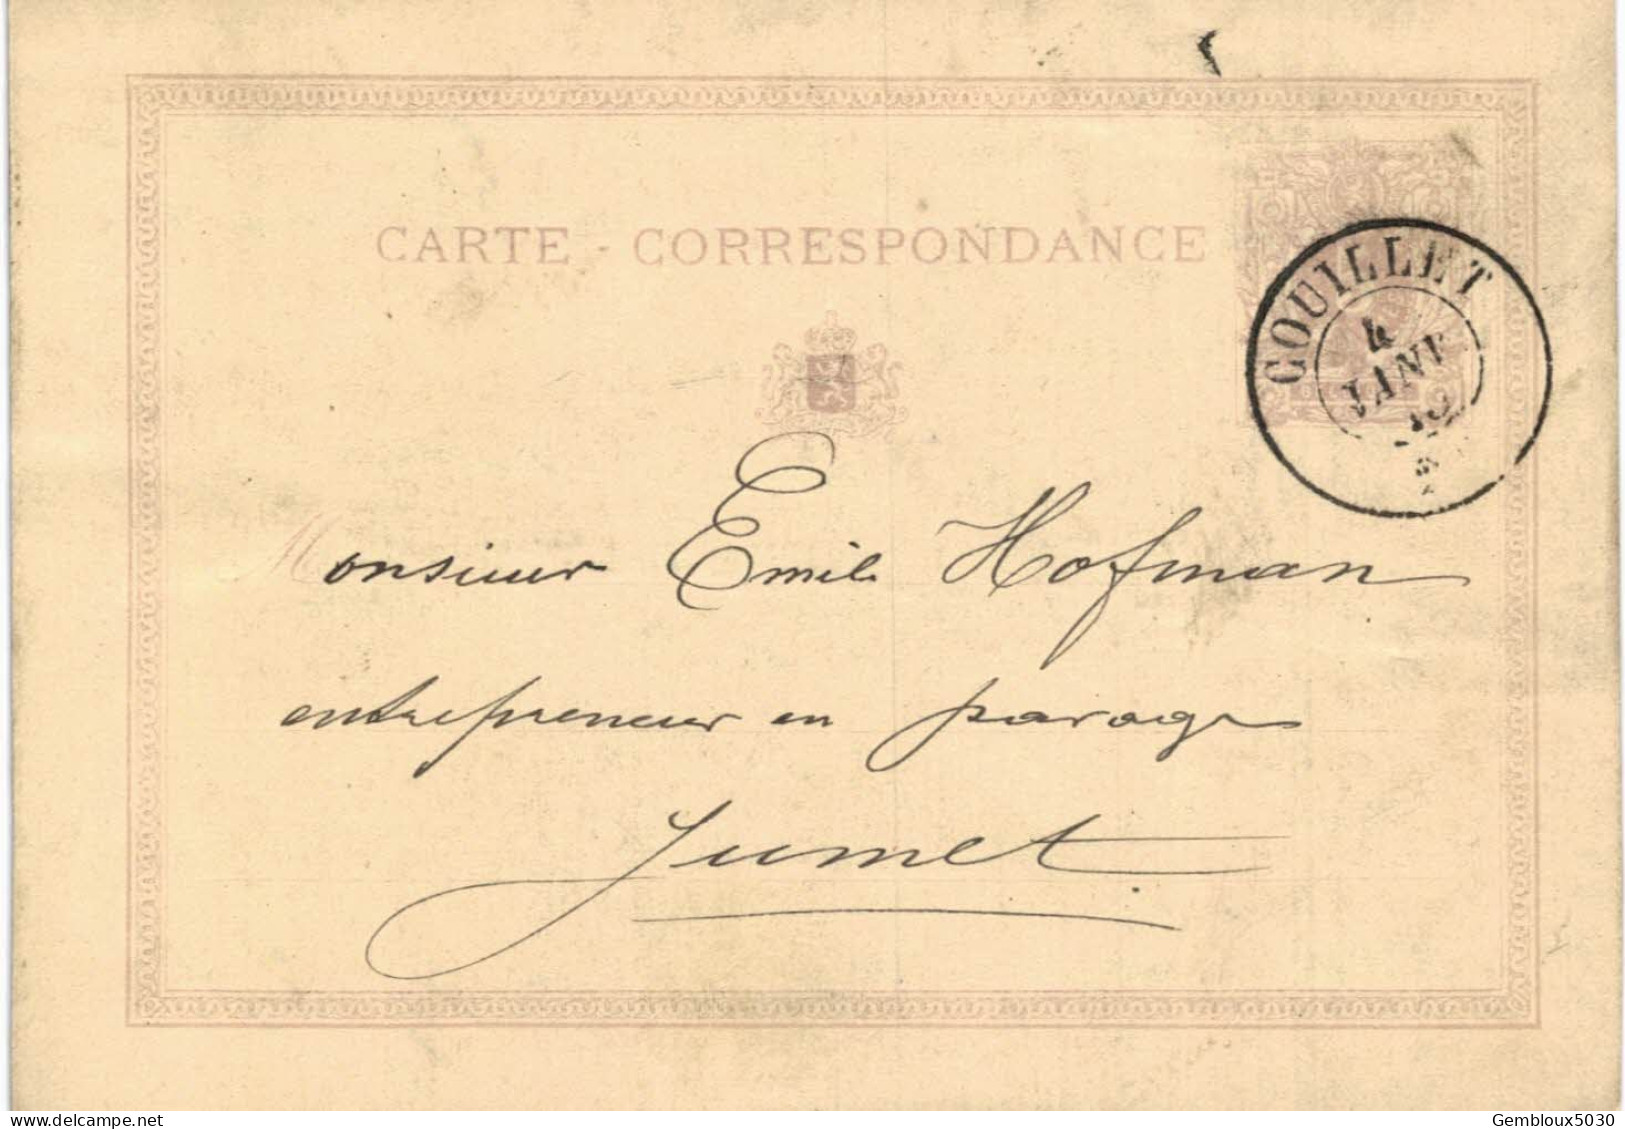 CARTE - CORRESPONDANCE
COUILLET
4
JANV
Monsieur Emile Hofman
entrepreneur en pavages
Jumet
www.delcampe.net
Gembloux5030